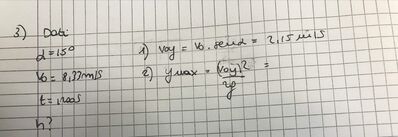 3) Dati
α = 15°
V₀ = 8,33 m/s
t = 1,00 s
h?
1) Voy = V₀ · senα = 2,15 m/s
2) y max = (Voy)² / 2g =